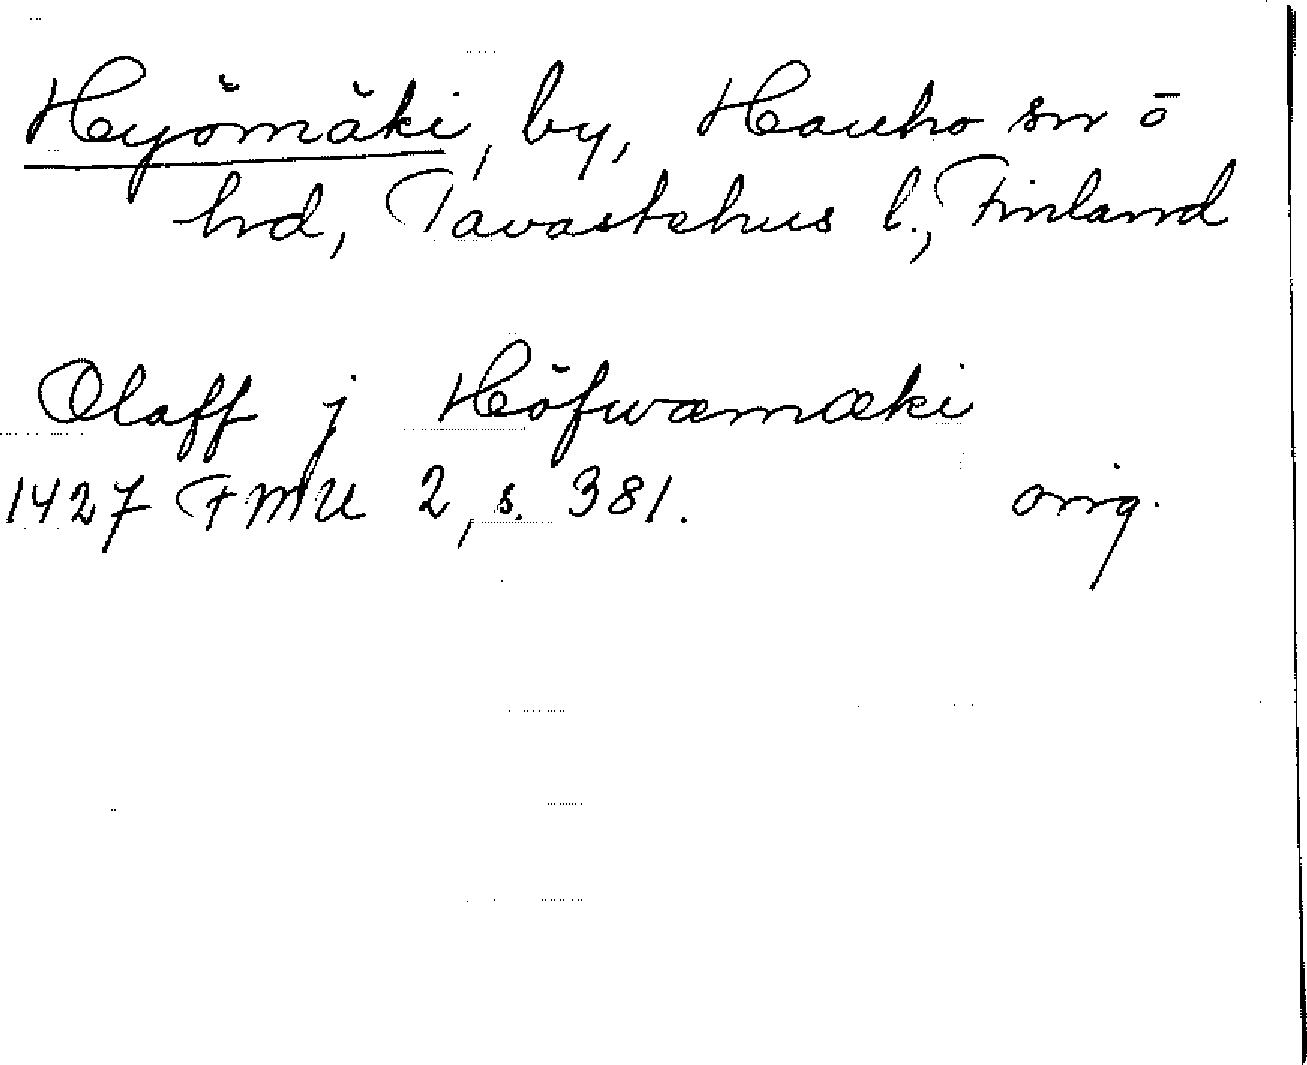 Hyömäki, by, Hauho sn o
hd, Tavastehus l., Finland
Olaff j Höfwæmæki
1427 FMU 2, s. 381. orig.